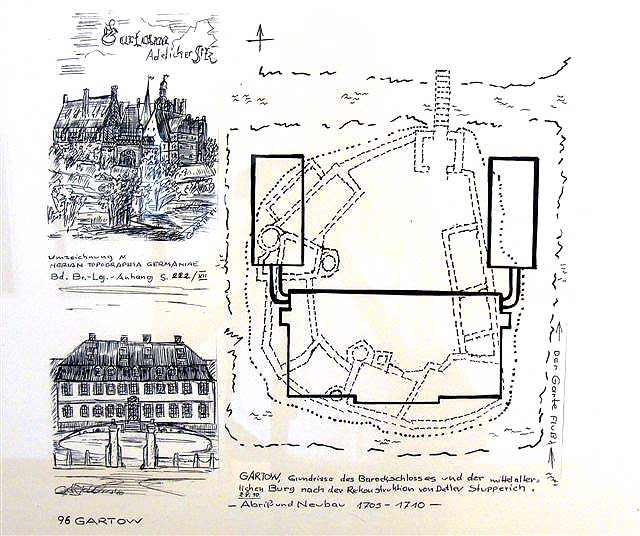 Gartowa
Adelicher Sitz
Umzeichnung n.
MERIAN TOPOGRAPHIA GERMANIAE
Bd. Br.-Lg.-Anhang S. 222/VII
Der Garte Fluß
GARTOW, Grundrisse des Barockschlosses und der mittelalter-
lichen Burg nach der Rekonstruktion von Detlev Stupperich.
— Abriß und Neubau 1705 - 1710 —
96 GARTOW